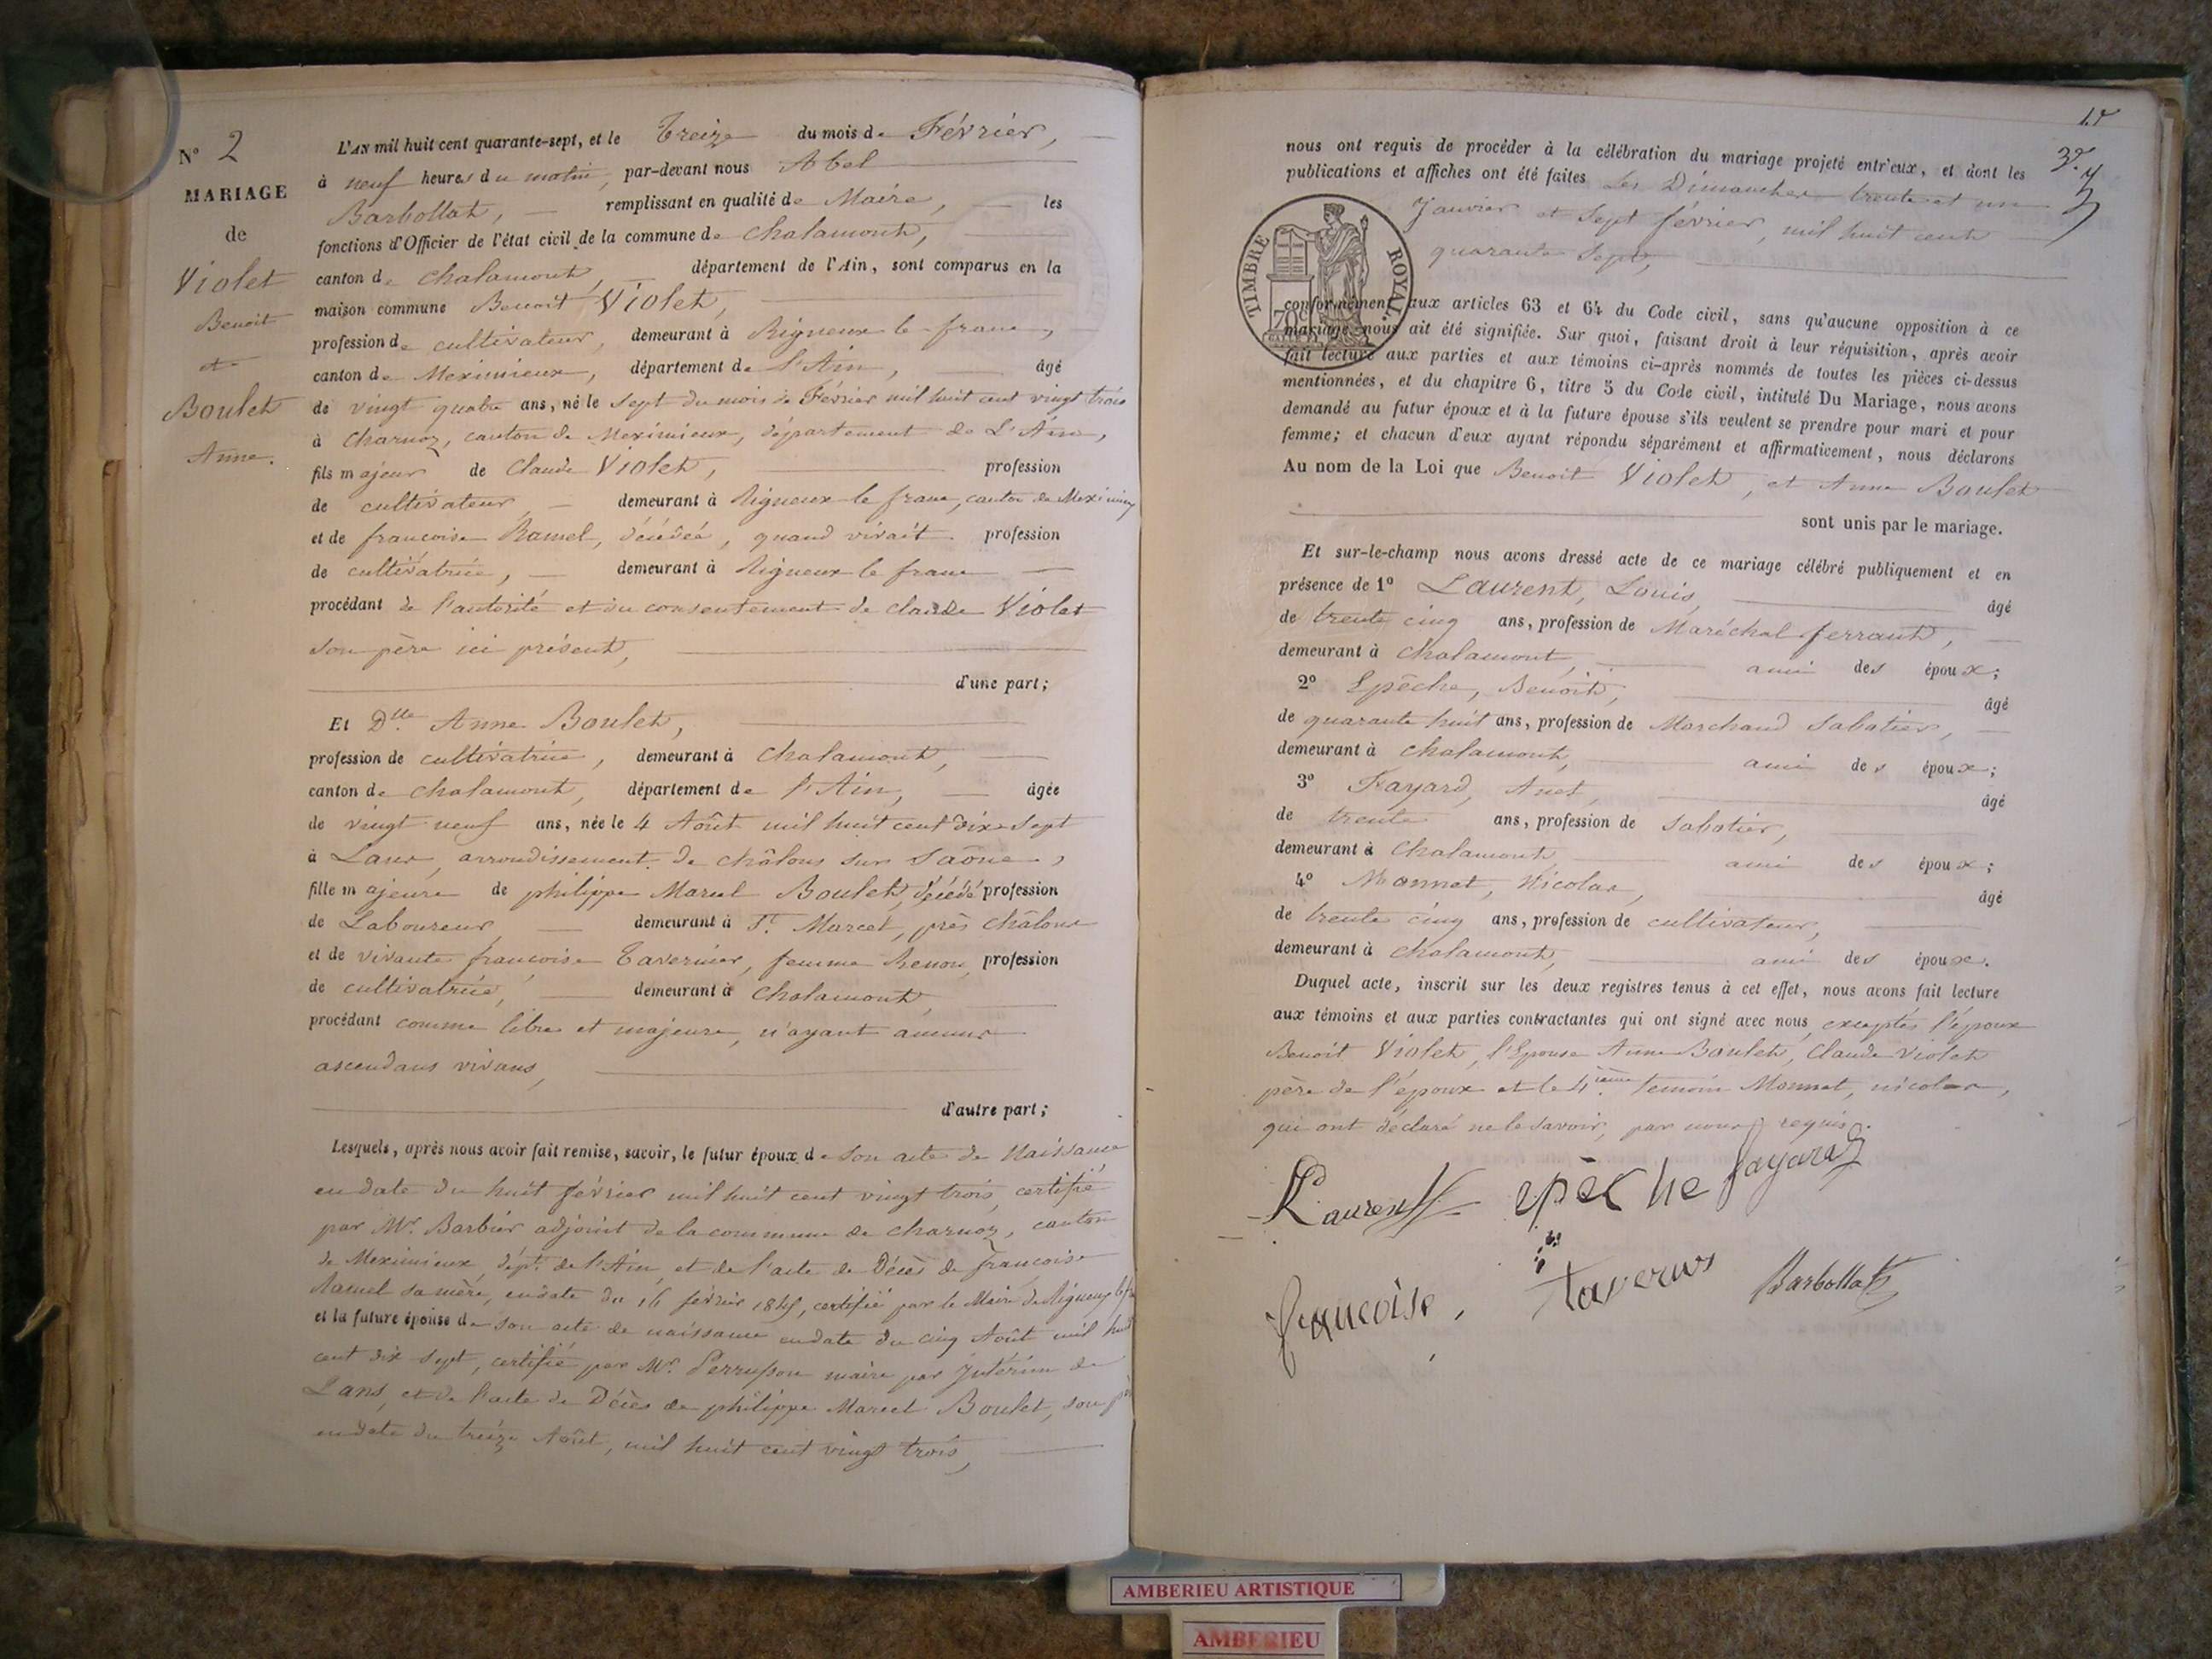 N° 2
MARIAGE
de
Violet
Benoit
et
Boulet
Anne.
L'AN mil huit cent quarante-sept, et le Treize du mois de Février,
à neuf heures du matin, par-devant nous Abel
Barbollat, remplissant en qualité de Maire, les
fonctions d'Officier de l'état civil de la commune de Chalamont,
canton de Chalamont, département de l'Ain, sont comparus en la
maison commune Benoit Violet,
profession de cultivateur, demeurant à Rigneux le franc,
canton de Meximieux, département de l'Ain, âgé
de vingt quatre ans, né le sept du mois de Février mil huit cent vingt trois
à Charnoz, canton de Meximieux, département de L'Ain,
fils majeur de Claude Violet, profession
de cultivateur demeurant à Rigneux le franc, canton de Meximieux
et de francoise Ramel, décédéé, quand vivait profession
de cultivatrice, demeurant à Rigneux le franc
procédant de l'autorité et du consentement de claude Violet
son père ici présent,
d'une part;
Et Dlle Anne Boulet,
profession de cultivatrice, demeurant à Chalamont,
canton de Chalamont, département de l'Ain, âgée
de vingt neuf ans, née le 4 Août mil huit cent dix sept
à Lans, arrondissement de châlons sur Saône,
fille majeure de philippe Marcel Boulet, décédé profession
de Laboureur demeurant à St. Marcel, près Châlons
et de vivante francoise Tavernier, femme Renon, profession
de cultivatrice, demeurant à Chalamont,
procédant comme libre et majeure, n'ayant aucuns
ascendans vivans,
d'autre part;
Lesquels, après nous avoir fait remise, savoir, le futur époux de son acte de Naissance
en date du huit février mil huit cent vingt trois, certifié
par Mr. Barbier adjoint de la commune de Charnoz, canton
de Meximieux, dépt. de l'Ain, et de l'acte de Décès de francoise
Ramel sa mère, en date du 16 fevrier certifié par le Maire de Rigneux
et la future épouse de son acte de naissance en date du cinq Août mil huit
cent dix sept, certifié par Mr. Perrusson maire par Intérim de
Lans, et de l'acte de Décès de philippe Marcel Boulet, son père
en date du treize Août, mil huit cent vingt trois,
nous ont requis de procéder à la célébration du mariage projeté entr'eux, et dont les
publications et affiches ont été faites Les Dimanches trente et un
Janvier et Sept février, mil huit cent
quarante Sept,
TIMBRE ROYAL.
70
conformément aux articles 63 et 64 du Code civil, sans qu'aucune opposition à ce
mariage nous ait été signifiée. Sur quoi, faisant droit à leur réquisition, après avoir
fait lecture aux parties et aux témoins ci-après nommés de toutes les pièces ci-dessus
mentionnées, et du chapitre 6, titre 5 du Code civil, intitulé Du Mariage, nous avons
demandé au futur époux et à la future épouse s'ils veulent se prendre pour mari et pour
femme; et chacun d'eux ayant répondu séparément et affirmativement, nous déclarons
Au nom de la Loi que Benoit Violet, et Anne Boulet
sont unis par le mariage.
Et sur-le-champ nous avons dressé acte de ce mariage célébré publiquement et en
présence de 1° Laurent, Louis, âgé
de trente cinq ans, profession de Maréchal ferrant,
demeurant à Chalamont, ami des époux;
2° Epêche, Benoit, âgé
de quarante huit ans, profession de Marchand Sabotier,
demeurant à Chalamont, ami des époux;
3° Fayard, Anet, âgé
de trente ans, profession de Sabotier,
demeurant à Chalamont, ami des époux;
4° Monnet, Nicolas, âgé
de trente cinq ans, profession de cultivateur,
demeurant à Chalamont, ami des époux.
Duquel acte, inscrit sur les deux registres tenus à cet effet, nous avons fait lecture
aux témoins et aux parties contractantes qui ont signé avec nous, exceptés l'époux
Benoit Violet, l'Epouse Anne Boulet, Claude Violet
père de l'époux et le 4ième témoin Monnet, nicolas,
qui ont déclaré ne le savoir, par nous requis.
Laurent epèche fayard
francoise, Barbollat
AMBERIEU ARTISTIQUE
AMBERIEU